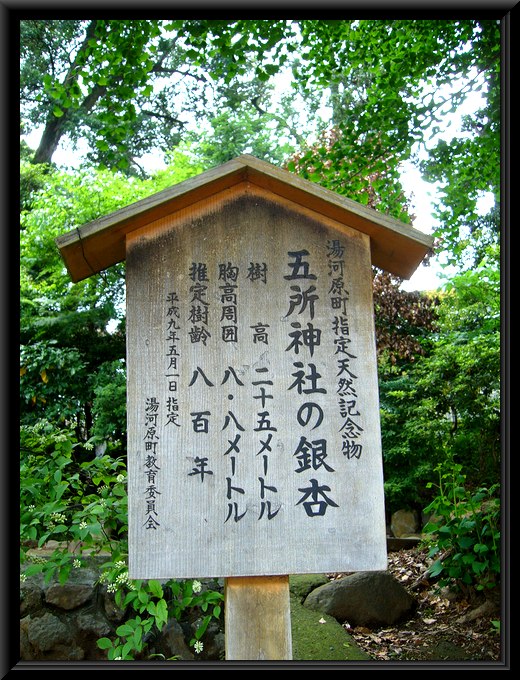 湯河原町指定天然記念物
五所神社の銀杏
樹高 二十五メートル
胸高周囲 八・八メートル
推定樹齢 八百年
平成九年五月一日 指定
湯河原町教育委員会